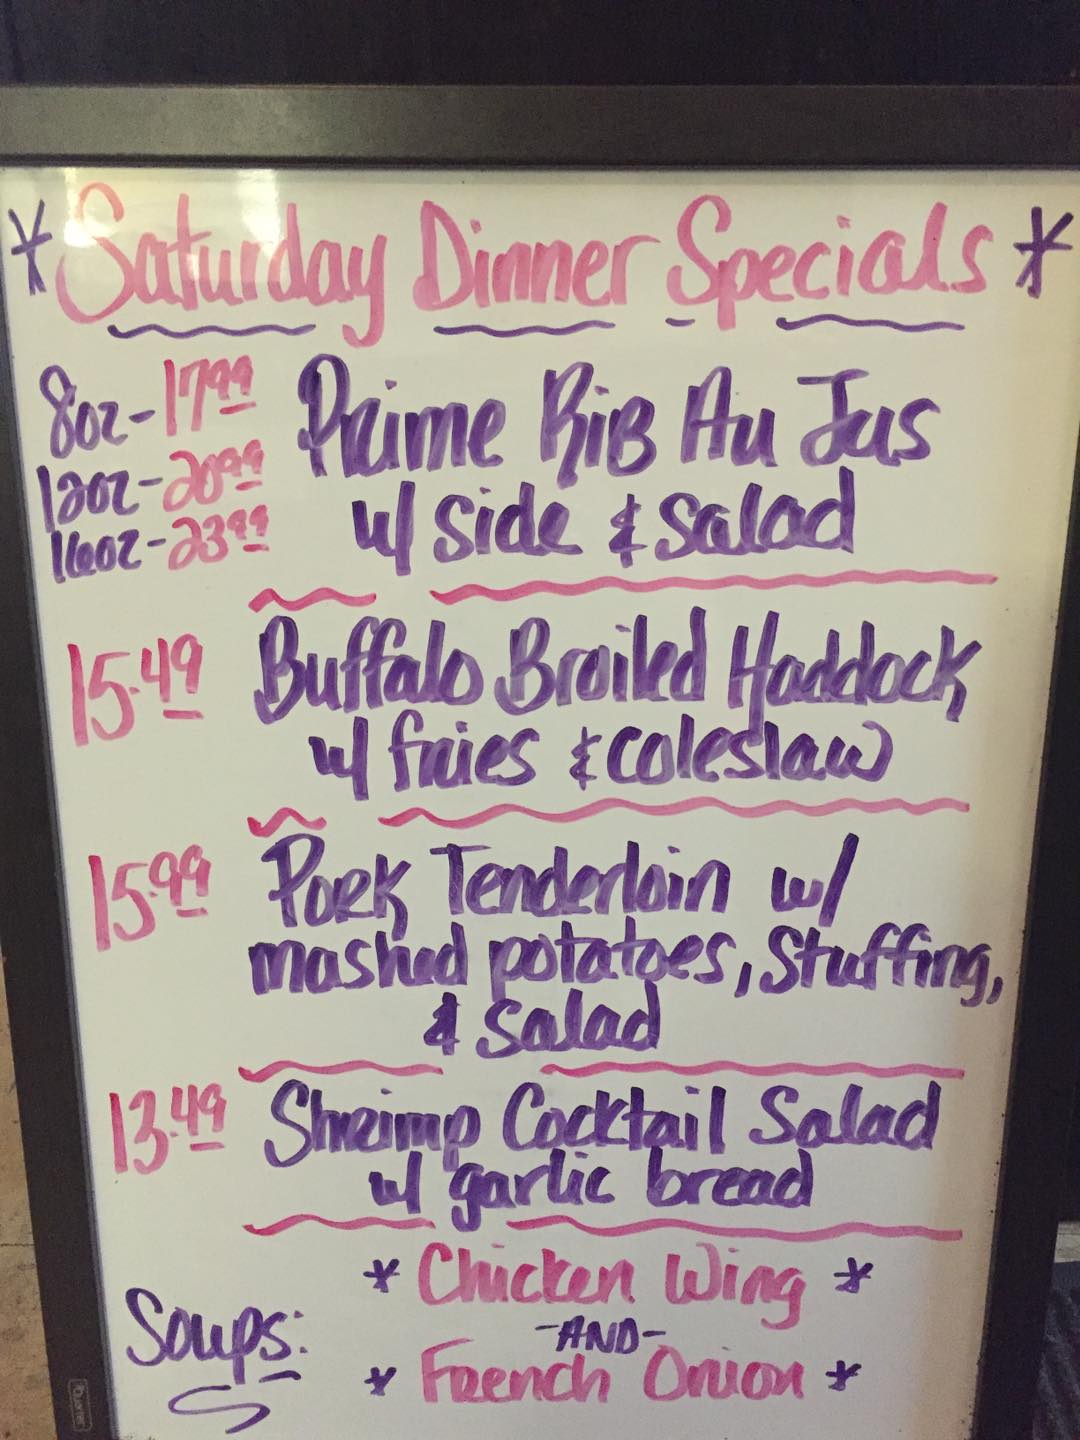 * Saturday Dinner Specials *
8oz-17.99 Prime Rib Au Jus
12oz-20.99 w/ side & salad
16oz-23.99
15.49 Buffalo Broiled Haddock
w/ fries & coleslaw
15.99 Pork Tenderloin w/
mashed potatoes, Stuffing,
& salad
13.49 Shrimp Cocktail Salad
w/ garlic bread
* Chicken Wing *
Soups: -AND-
* French Onion *